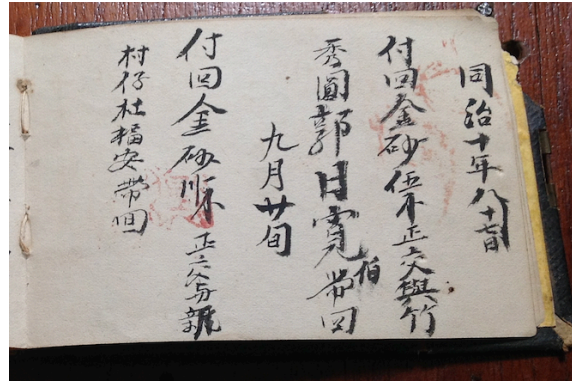 同治十年八月十七日
付回金砂伍不正交與竹
秀圓郭日寬伯帶回
九月廿旬
付回金砂正交与
村仔杜福安帶回